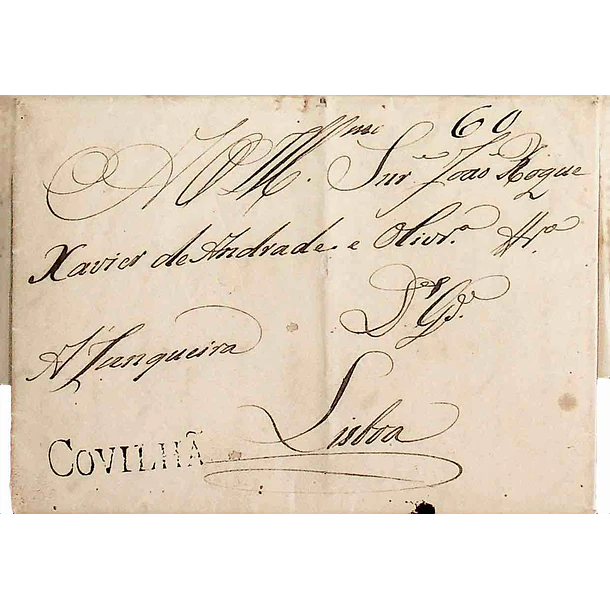 60
Ao Illmo. Snr. João Roque
Xavier de Andrade e Olivr.ª
Ds. Gde.
A' Junqueira
Lisboa
COVILHÃ